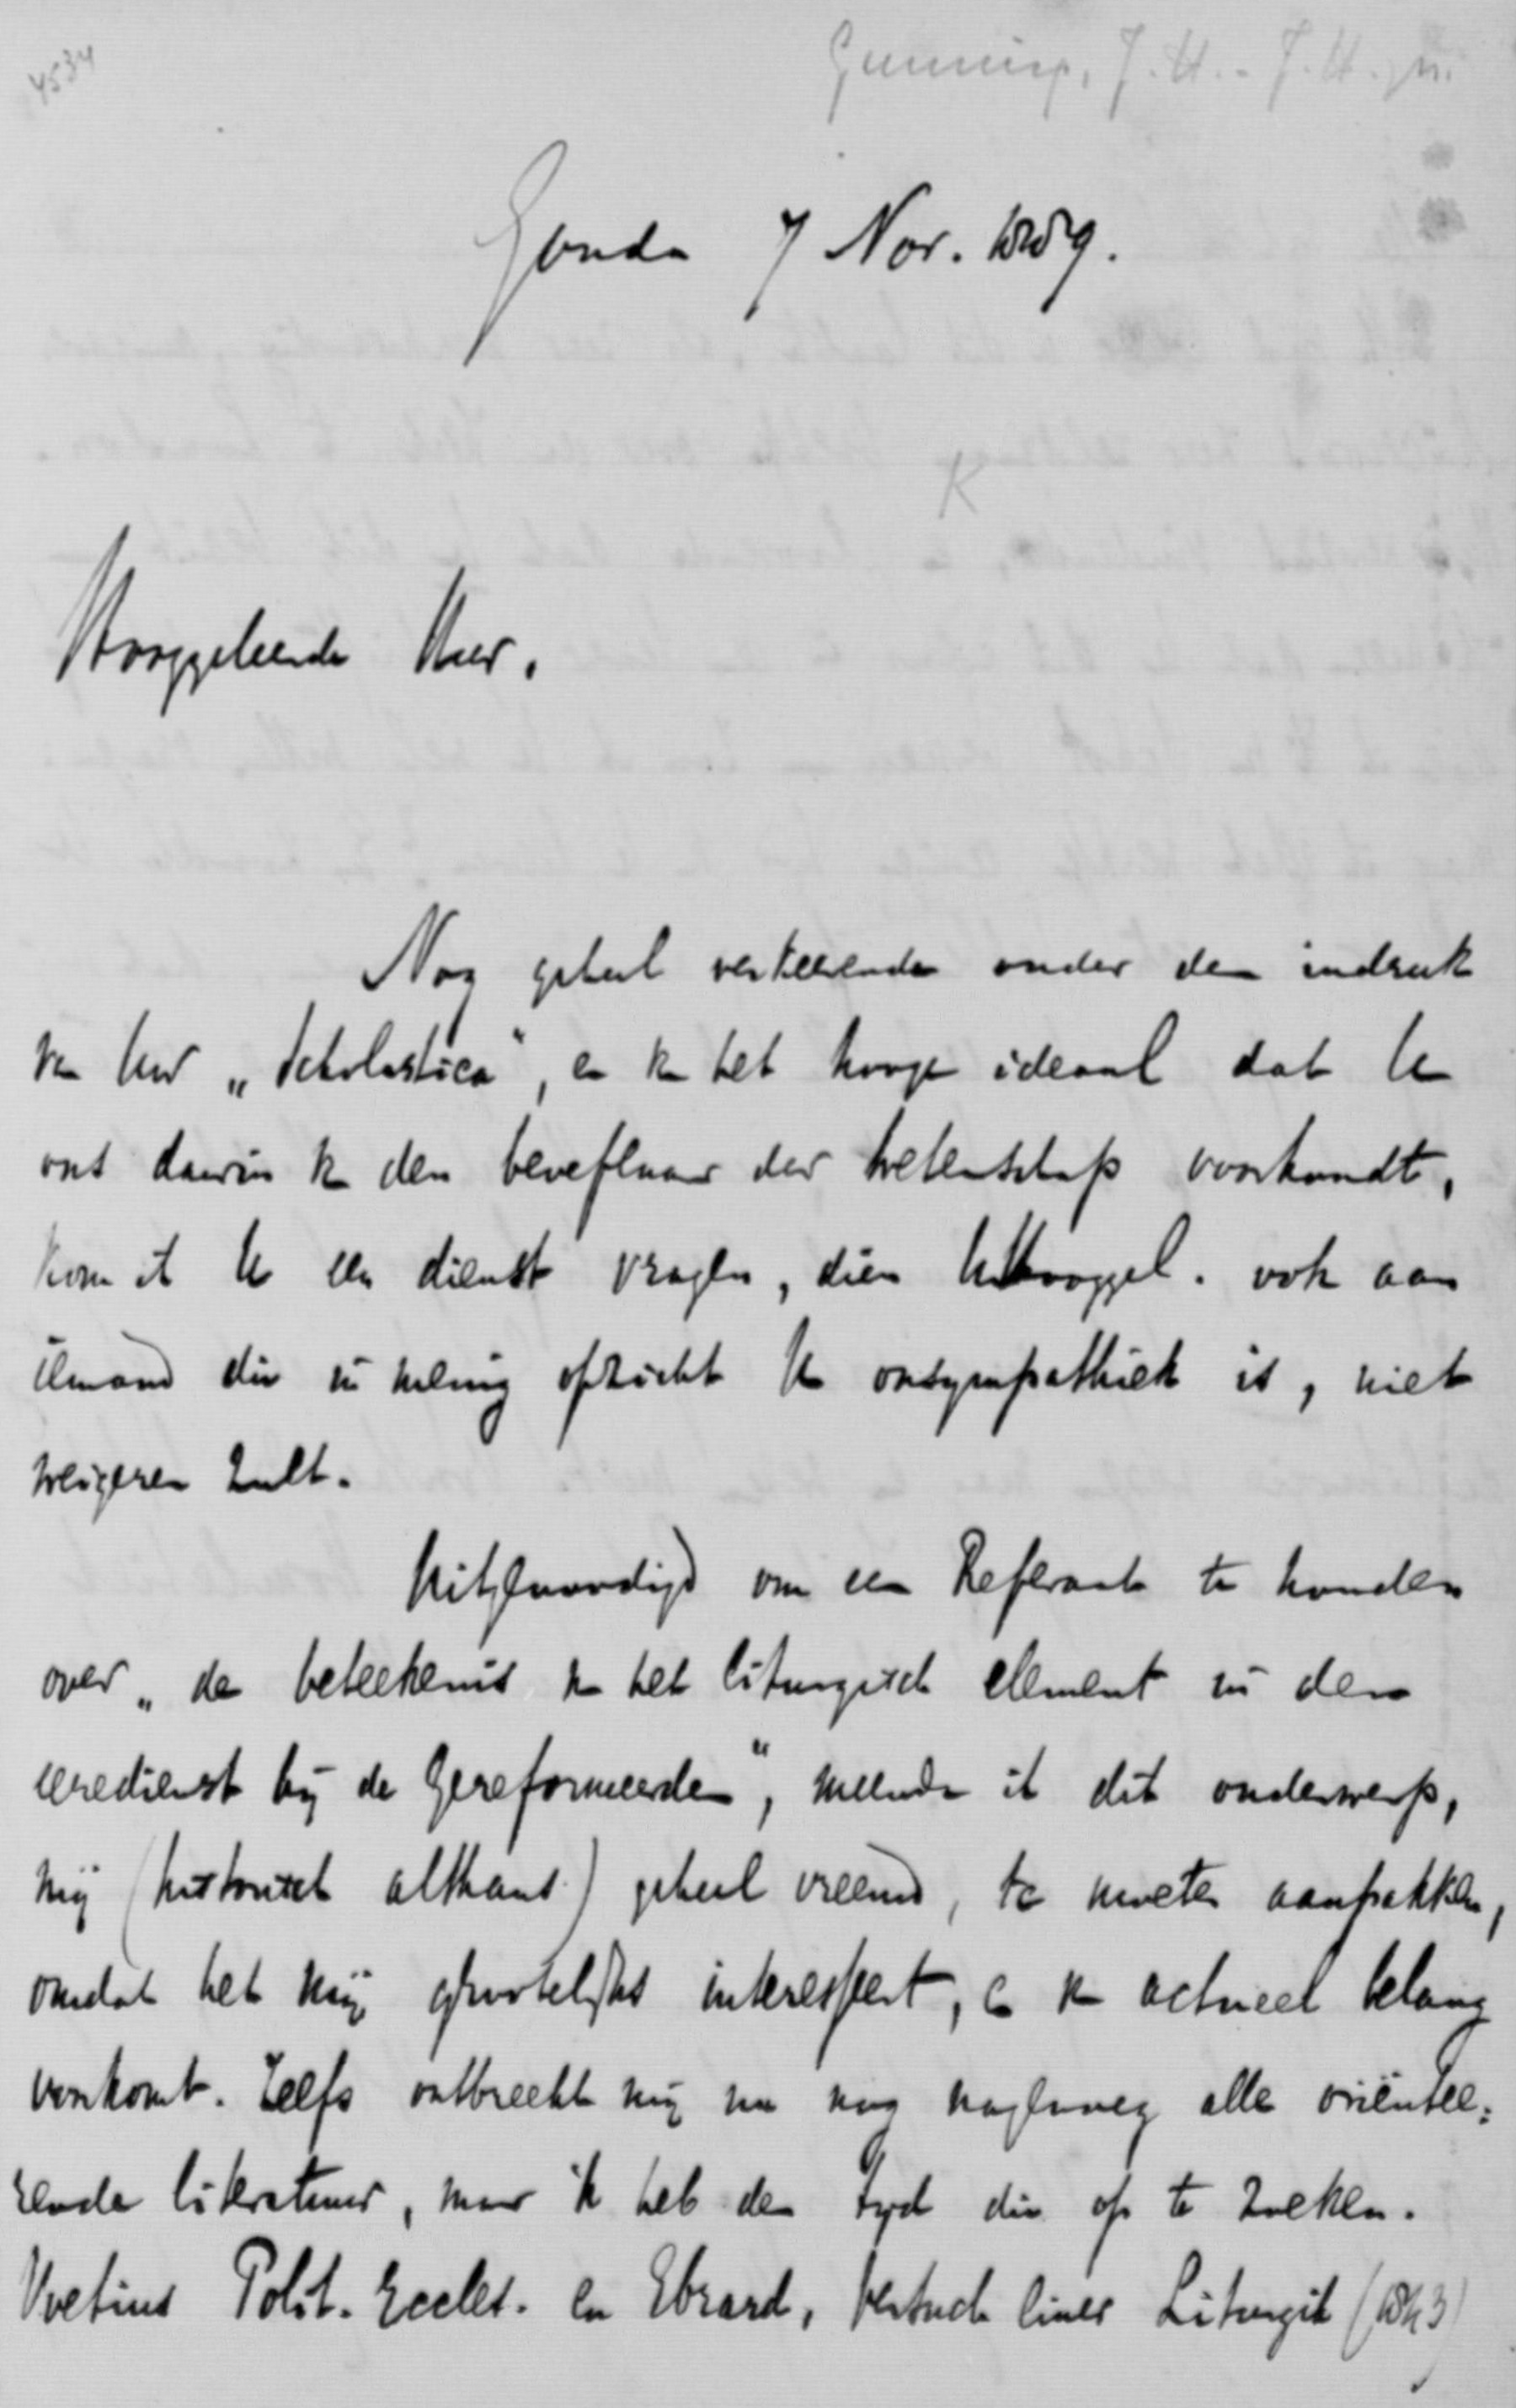 4534
Gunning, J.H. - J.H.zn.
Gouda 7 Nov. 1889.
K
Hooggeleerde Heer,
Nog geheel verkeerende onder den indruk
van Uw „Scholastica", en van het hooge ideaal dat U
ons daarin van den beoefenaar der wetenschap voorhoudt,
kom ik U een dienst vragen, dien UHooggel. ook aan
iemand die in menig opzicht U onsympathiek is, niet
weigeren zult.
Uitgenoodigd om een Referaat te houden
over „de beteekenis van het liturgisch element in den
eeredienst bij de Gereformeerden", meende ik dit onderwerp,
mij (historisch althans) geheel vreemd, te moeten aanpakken,
omdat het mij grootelijks interesseert, en van actueel belang
voorkomt. Zelfs ontbreekt mij nu nog nagenoeg alle oriëntee-
rende literatuur, maar ik heb den tijd die op te zoeken.
Voetius Polit. Eccles. en Ebrard, Versuch einer Liturgik (1843)